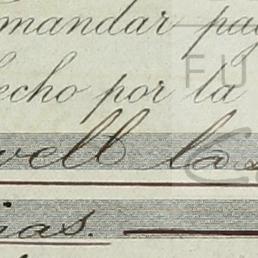 mandar pag
echo por la
well la
ias.